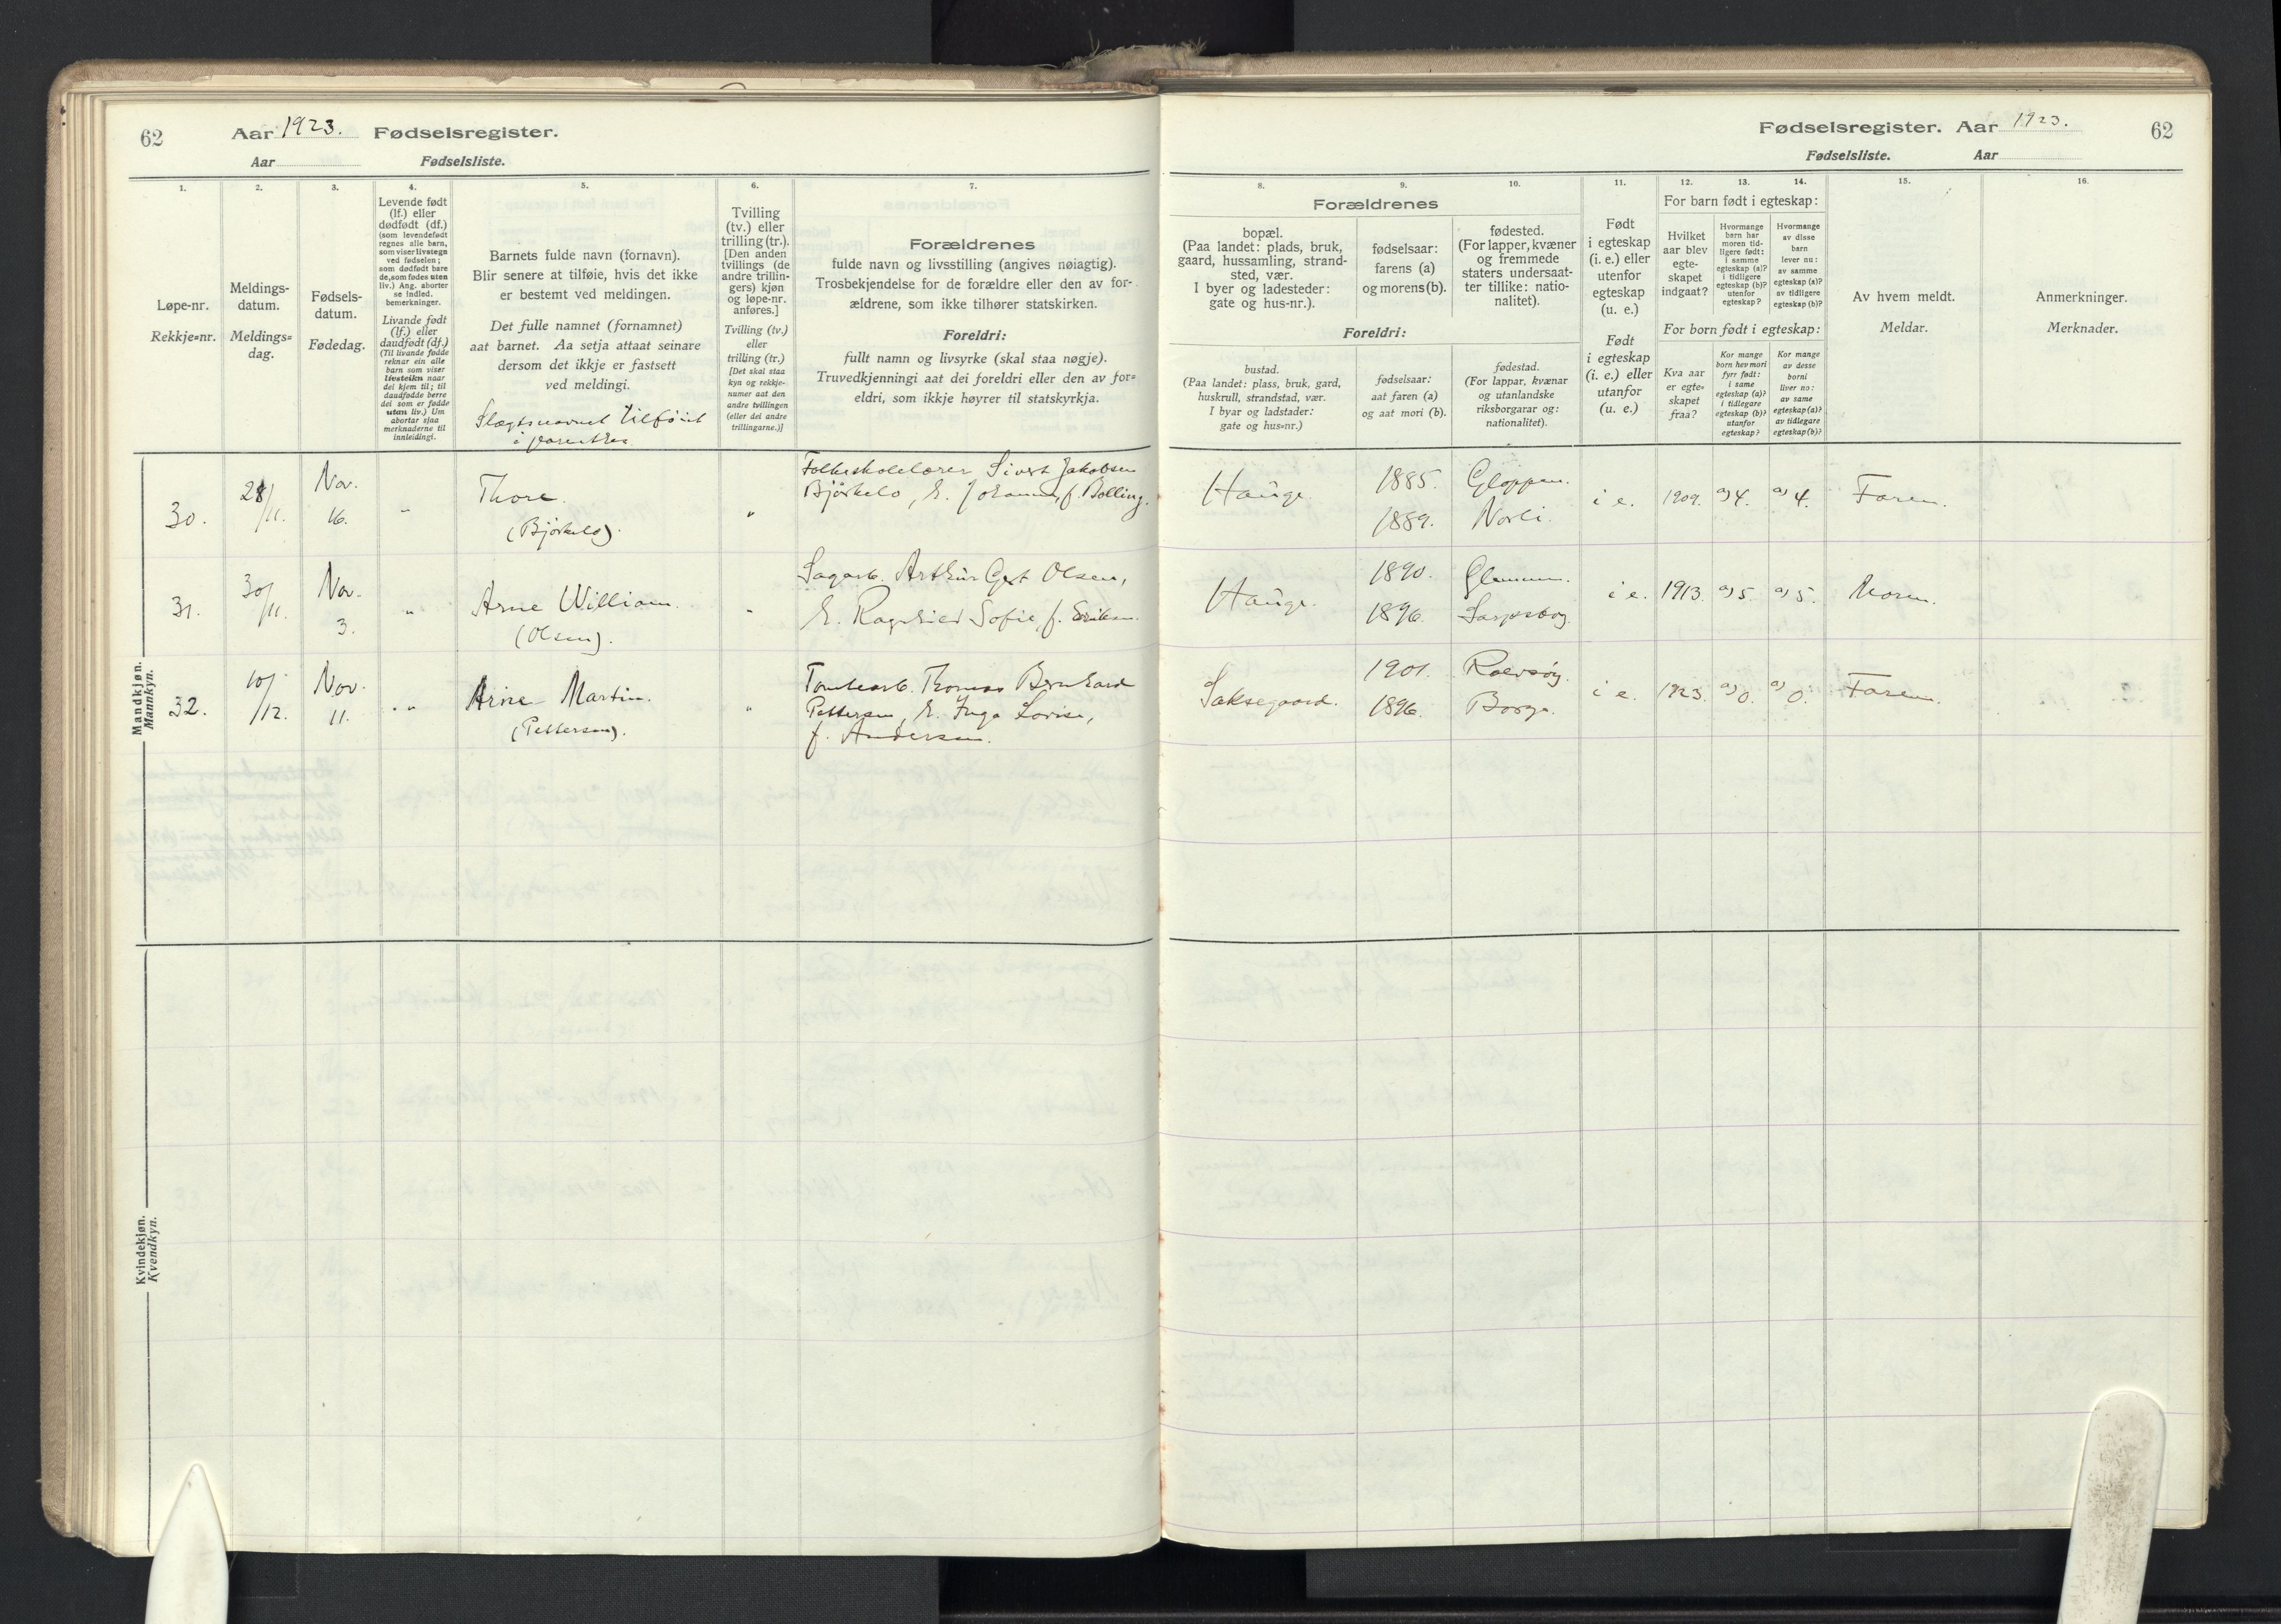 62
Aar 1923. Fødselsregister.
Aar Fødselsliste.
1.
2.
3.
4.
5.
6.
7.
Løpe-nr.
Rekkje=nr.
Meldings-
datum.
Meldings=
dag.
Fødsels-
datum.
Fødedag.
Levende født
(lf.) eller
dødfødt (df.)
(som levendefødt
regnes alle barn,
som viser livstegn
ved fødselen;
som dødfødt bare
de, som fødes uten
liv.) Ang. aborter
se indled.
bemerkninger.
Livande født
(lf.) eller
daudfødt (df.)
(Til livande fødde
reknar ein alle
barn som viser
livsteikn naar
dei kjem til; til
daudfødde berre
dei som er fødde
utan liv.) Um
abortar sjaa
merknaderne til
innleidingi.
Barnets fulde navn (fornavn).
Blir senere at tilføie, hvis det ikke
er bestemt ved meldingen.
Det fulle namnet (fornamnet)
aat barnet. Aa setja attaat seinare
dersom det ikkje er fastsett
ved meldingi.
Slægtsnavnet tilføiet
i parentes
Tvilling
(tv.) eller
trilling (tr.).
[Den anden
tvillings (de
andre trillin-
gers) kjøn
og løpe-nr.
anføres.]
Tvilling (tv.)
eller
trilling (tr.)
[Det skal staa
kyn og rekkje-
numer aat den
andre tvillingen
(eller dei andre
trillingarne.)]
Forældrenes
fulde navn og livsstilling (angives nøiagtig).
Trosbekjendelse for de forældre eller den av for-
ældrene, som ikke tilhører statskirken.
Foreldri:
fullt namn og livsyrke (skal staa nøgje).
Truvedkjenningi aat dei foreldri eller den av for=
eldri, som ikkje høyrer til statskyrkja.
Fødselsregister. Aar 1923. 62
Fødselsliste. Aar
8.
9.
10.
11.
12.
13.
14.
15.
16.
Forældrenes
bopæl.
(Paa landet: plads, bruk,
gaard, hussamling, strand-
sted, vær.
I byer og ladesteder:
gate og hus-nr.).
fødselsaar:
farens (a)
og morens (b).
fødested.
(For lapper, kvæner
og fremmede
staters undersaat-
ter tillike: natio-
nalitet).
Foreldri:
bustad.
(Paa landet: plass, bruk, gard,
huskrull, strandstad, vær.
I byar og ladstader:
gate og hus=nr.)
fødselsaar:
aat faren (a)
og aat mori (b).
fødestad.
(For lappar, kvænar
og utanlandske
riksborgarar og:
nationalitet).
Født
i egteskap
(i. e.) eller
utenfor
egteskap
(u. e.)
Født
i egteskap
(i. e.) eller
utanfor
(u. e.)
For barn født i egteskap:
Hvilket
aar blev
egte-
skapet
indgaat?
Hvormange
barn har
moren tid-
ligere født:
i samme
egteskap (a)?
i tidligere
egteskap (b)?
utenfor
egteskap?
Hvormange
av disse
barn
lever nu:
av samme
egteskap (a)?
av tidligere
egteskap (b)?
For born født i egteskap:
Kva aar
er egte=
skapet
fraa?
Kor mange
born hev mori
fyrr født:
i same
egteskap (a)?
i tidlegare
egteskap (b)?
utanfor
egteskap?
Kor mange
av desse
borni
liver no:
av same
egteskap (a)?
av tidlegare
egteskap (b)?
Av hvem meldt.
Meldar.
Anmerkninger.
Merknader.
Mandkjøn.
Mannkyn.
30. 28/11. Nov. 16. " Thore. (Bjørkelo). " Folkeskolelærer Sivert Jakobsen
Bjørkelo, H. Johanne, f. Bolling.
Hauge. 1885. Gloppen. i e. 1909. a) 4. a) 4. Faren.
1889. Norli.
31. 30/11. Nov. 3. " Arne William. (Olsen). " Sagarb. Arthur Gert Olsen,
H. Ragnhild Sofie, f. Eriksen.
Hauge. 1890. Glemmen. i e. 1913. a) 5. a) 5. Moren.
1896. Sarpsborg.
32. 10/12. Nov. 11. " Arne Martin. (Pettersen). " Tomtearb. Thomas Bernhard
Pettersen, H. Inga Lovise,
f. Andersen.
Saksegaard. 1901. Rolvsøy. i e. 1923. a) 0. a) 0. Faren.
1896. Borge.
Kvindekjøn.
Kvendkyn.